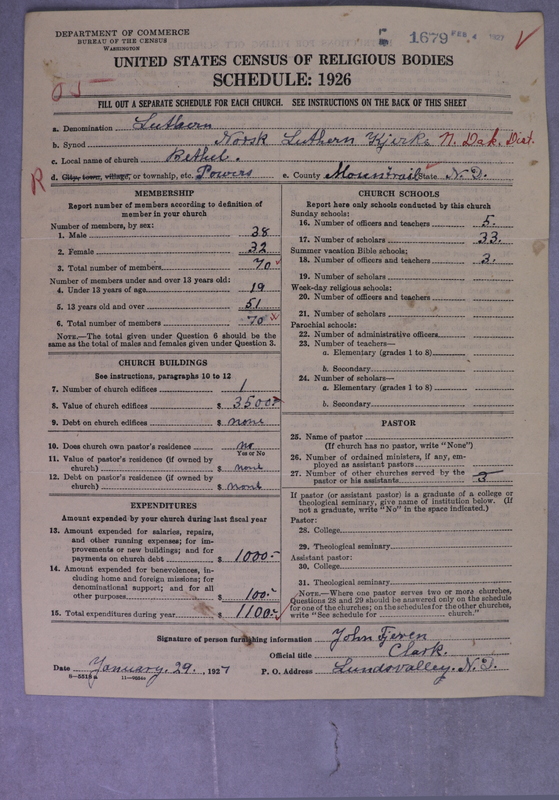 DEPARTMENT OF COMMERCE
BUREAU OF THE CENSUS
WASHINGTON
1679 FEB 4 1927
UNITED STATES CENSUS OF RELIGIOUS BODIES
SCHEDULE: 1926
FILL OUT A SEPARATE SCHEDULE FOR EACH CHURCH. SEE INSTRUCTIONS ON THE BACK OF THIS SHEET
a. Denomination Luthern
b. Synod Norsk Luthern Kjerke N. Dak. Dist.
c. Local name of church Bethel.
d. City, town, village, or township, etc. Powers e. County Mountrail State N. D.
R
MEMBERSHIP
Report number of members according to definition of member in your church
Number of members, by sex:
1. Male 38
2. Female 32
3. Total number of members 70
Number of members under and over 13 years old:
4. Under 13 years of age 19
5. 13 years old and over 51
6. Total number of members 70
NOTE.—The total given under Question 6 should be the same as the total of males and females given under Question 3.
CHURCH BUILDINGS
See instructions, paragraphs 10 to 12
7. Number of church edifices 1
8. Value of church edifices $ 3500
9. Debt on church edifices $ none
10. Does church own pastor's residence no
Yes or No
11. Value of pastor's residence (if owned by church) $ none
12. Debt on pastor's residence (if owned by church) $ none
EXPENDITURES
Amount expended by your church during last fiscal year
13. Amount expended for salaries, repairs, and other running expenses; for improvements or new buildings; and for payments on church debt $ 1000.-
14. Amount expended for benevolences, including home and foreign missions; for denominational support; and for all other purposes $ 100.-
15. Total expenditures during year $ 1100.-
CHURCH SCHOOLS
Report here only schools conducted by this church
Sunday schools:
16. Number of officers and teachers 5.
17. Number of scholars 33.
Summer vacation Bible schools;
18. Number of officers and teachers 3.
19. Number of scholars
Week-day religious schools:
20. Number of officers and teachers
21. Number of scholars
Parochial schools:
22. Number of administrative officers
23. Number of teachers—
a. Elementary (grades 1 to 8)
b. Secondary
24. Number of scholars—
a. Elementary (grades 1 to 8)
b. Secondary $
PASTOR
25. Name of pastor
(If church has no pastor, write "None")
26. Number of ordained ministers, if any, employed as assistant pastors
27. Number of other churches served by the pastor or his assistants 3
If pastor (or assistant pastor) is a graduate of a college or theological seminary, give name of institution below. (If not a graduate, write "No" in the space indicated.)
Pastor:
28. College
29. Theological seminary
Assistant pastor:
30. College
31. Theological seminary
NOTE.—Where one pastor serves two or more churches, Questions 28 and 29 should be answered only on the schedule for one of the churches; on the schedules for the other churches, write "See schedule for church."
Signature of person furnishing information John Fjeren
Official title Clark.
Date January. 29., 1927 P. O. Address Lundsvalley. N. D.